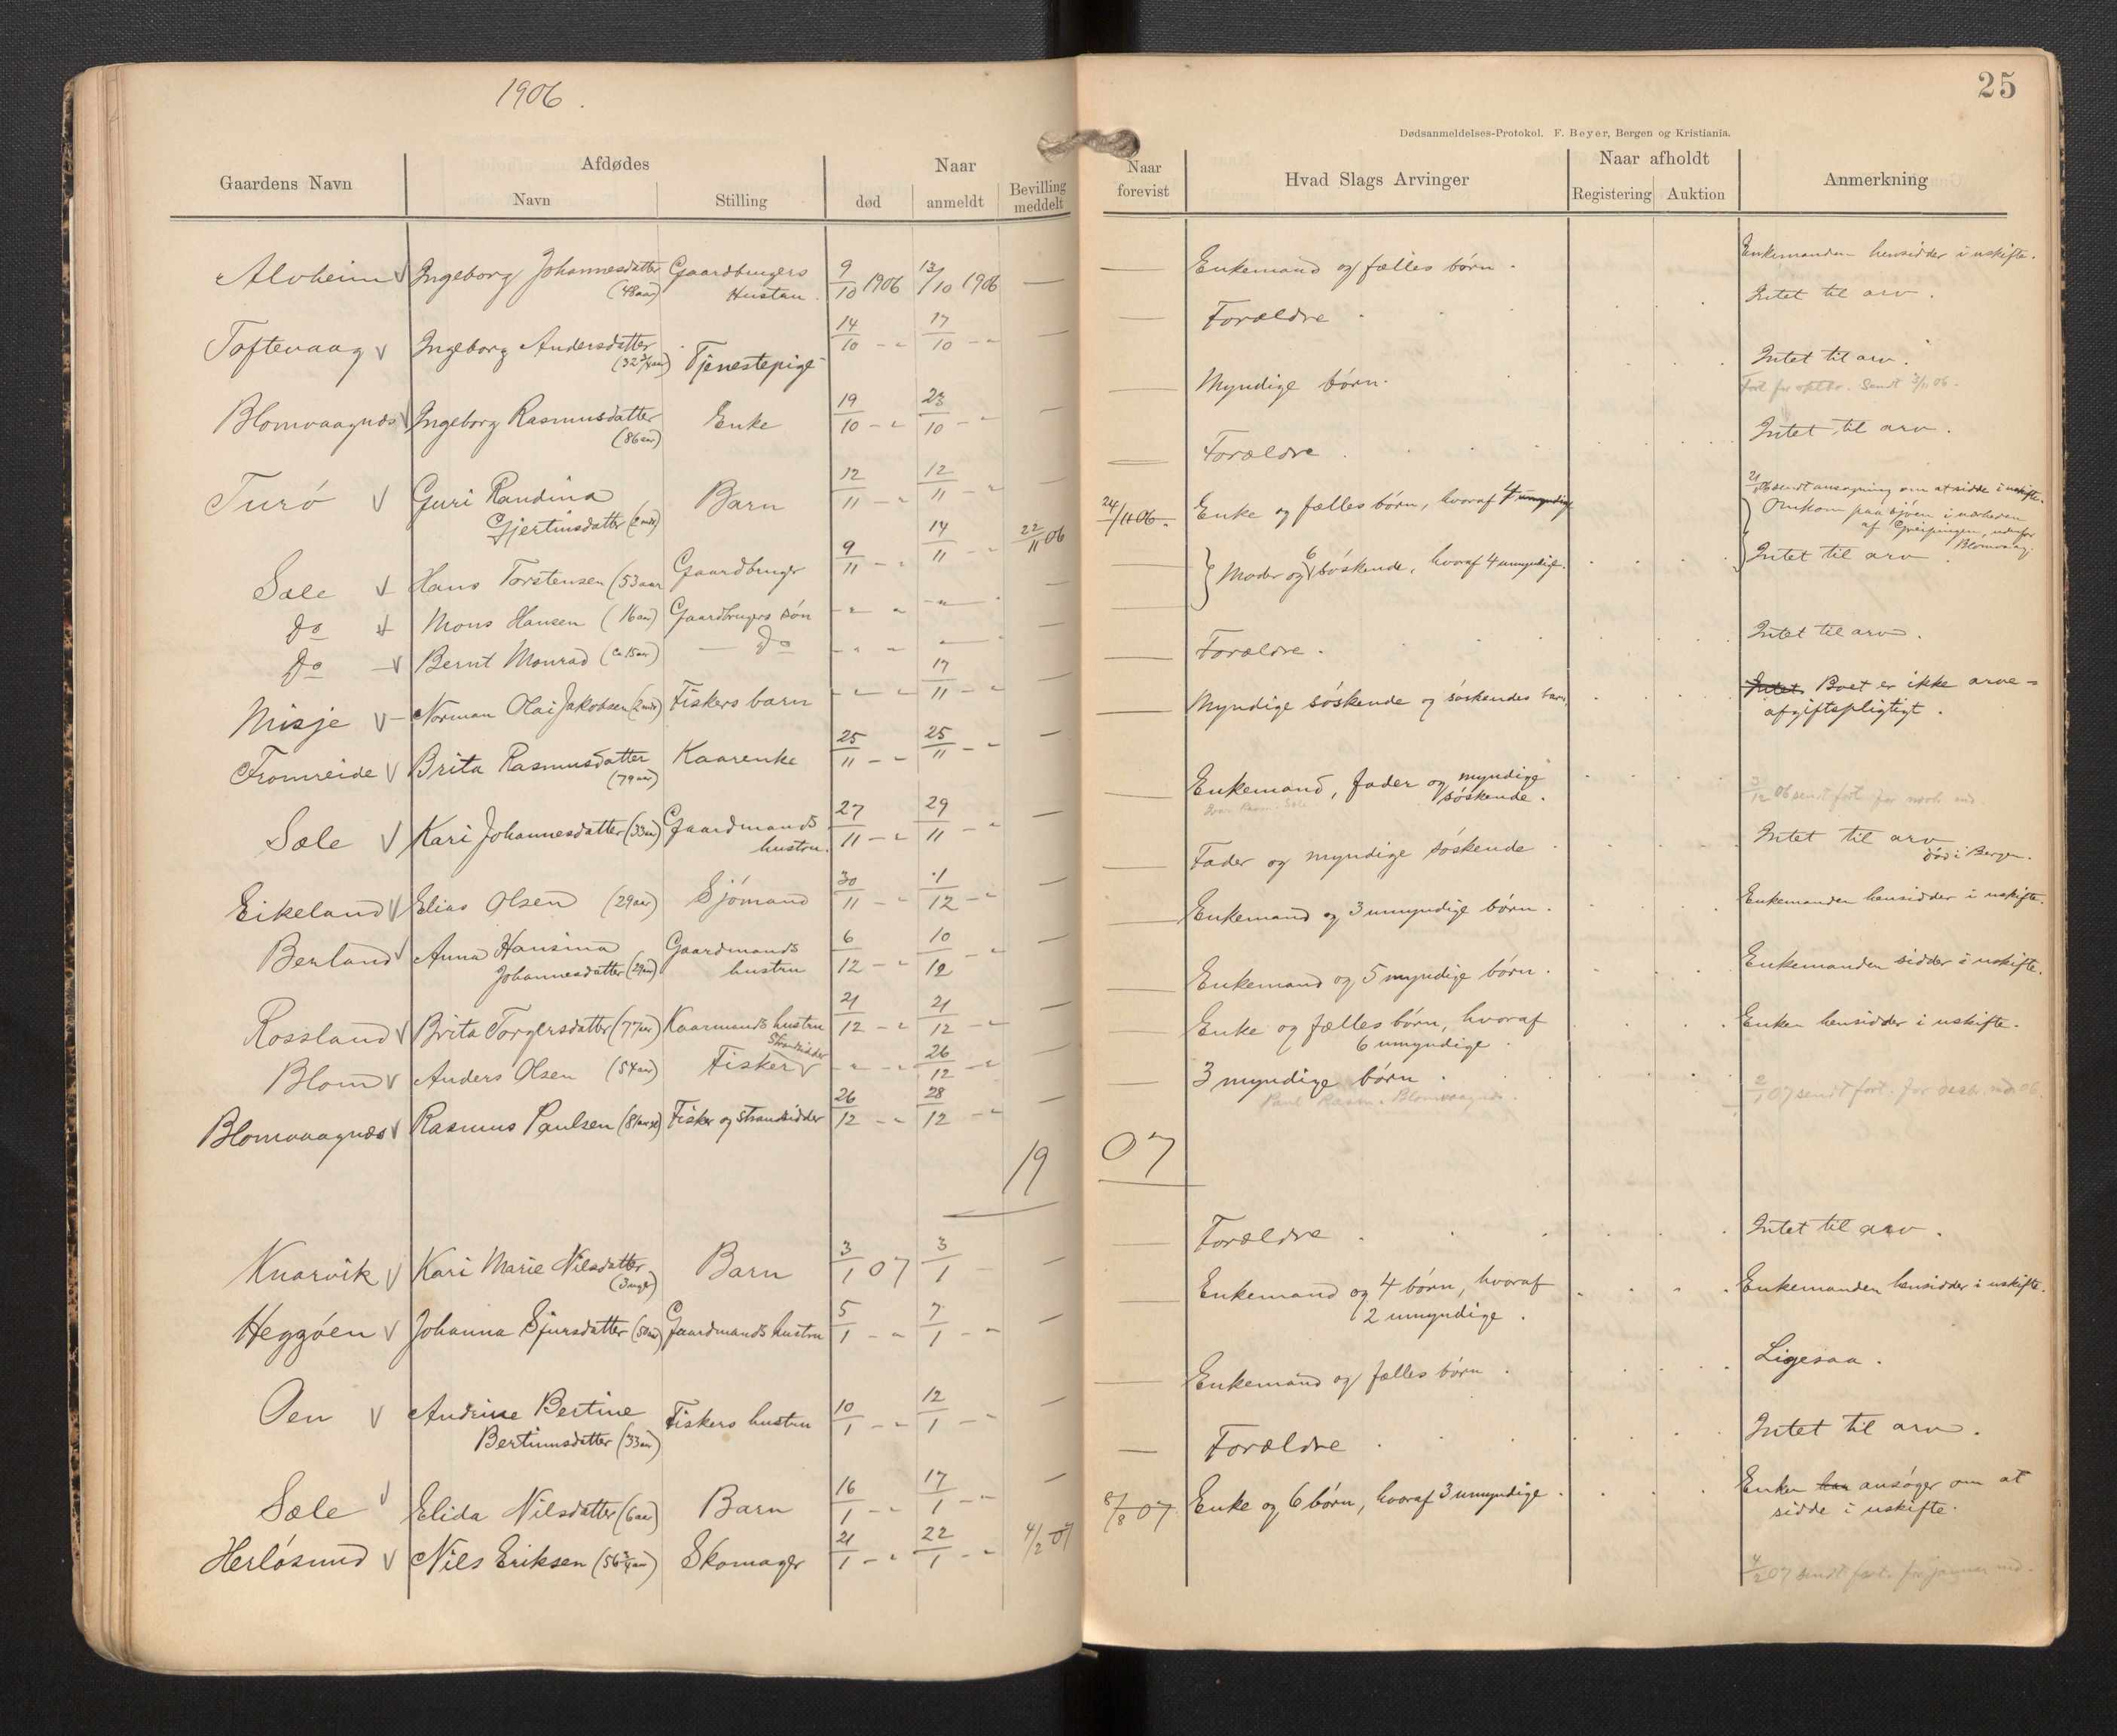 1906.
25
Dødsanmeldelses-Protokol. F. Beyer, Bergen og Kristiania.
Gaardens Navn | Afdødes Navn | Stilling | Naar død | anmeldt | Bevilling meddelt | Naar forevist | Hvad Slags Arvinger | Naar afholdt Registering | Auktion | Anmerkning
Alvheim √ Ingeborg Johannesdatter (48 aar) Gaardbrugers Hustru. 9/10 1906 13/10 1906 — — Enkemand og fælles børn. Enkemanden hensidder i uskifte.
Toftevaag √ Ingeborg Andersdatter (32 3/4 aar) Tjenestepige 14/10 - " 17/10 - " — — Forældre. Intet til arv.
Blomvaagnes √ Ingeborg Rasmusdatter (86 aar) Enke 19/10 - " 23/10 - " — — Myndige børn. Intet til arv.
Fort for oktbr. Sendt 3/11 06.
Turø √ Guri Randina Gjertinsdatter (2 mdr) Barn 12/11 - " 12/11 - " — — Forældre. Intet til arv.
Sæle √ Hans Torstensen (53 aar Gaardbruger 9/11 - " 14/11 - " 22/11 06 24/11 06. Enke og fælles børn, hvoraf 4 umyndig 21/11 06 sendt ansøgning om at sidde i uskifte.
Do √ Mons Hansen (16 aar) Gaardbrugers søn - " " - " — — } Moder og 6 søskende, hvoraf 4 umyndige. } Omkom paa sjøen i nærheden af Greipingen, udenfor Blomvaag.
Do √ Bernt Monrad (ca 15 aar) — Do - " " — — Intet til arv
Misje √ Norman Olai Jakobsen (2 mdr) Fiskers barn - " - " 17/11 - " — — Forældre. Intet til arv.
Fromreide √ Brita Rasmusdatter (79 aar) Kaarenke 25/11 - " 25/11 - " — — Myndige søskende og søskendes barn. Intet Boet er ikke arve=
afgiftspligtigt.
Sæle √ Kari Johannesdatter (33 aar) Gaardmands hustru. 27/11 - " 29/11 - " — — Enkemand, fader og myndige søskende. 3/12 06 sendt fort. for novb. md.
Intet til arv
Eikeland √ Elias Olsen (29 aar) Sjømand 30/11 - " 1/12 - " — — Fader og myndige søskende død i Bergen.
Berland √ Anna Hansina Johannesdatter (29 aar) Gaardmands hustru 6/12 - " 10/12 - " — — Enkemand og 3 umyndige børn. Enkemanden hensidder i uskifte.
Rossland √ Brita Torgersdatter (77 aar) Kaarmands hustru 21/12 - " 21/12 - " — — Enkemand og 5 myndige børn. Enkemanden sidder i uskifte.
Blom √ Anders Olsen (54 aar) Fisker √ Strandsidder - " - " 26/12 - " — — Enke og fælles børn, hvoraf 6 umyndige. Enken hensidder i uskifte.
Blomvaagnes √ Rasmus Paulsen (81 aar) Fisker og strandsidder 26/12 - " 28/12 - " — — 3 myndige børn.
Paul Rasm. Blomvaagnes.
2/1 07 sendt fort. for desbr. md. 06.
1907
Knarvik √ Kari Marie Nilsdatter (3 uger) Barn 3/1 07 3/1 — — Forældre. Intet til arv.
Heggøen √ Johanna Sjursdatter (50 aar) Gaardmands hustru 5/1 - " 7/1 - " — — Enkemand og 4 børn, hvoraf 2 umyndige. Enkemanden hensidder i uskifte.
Oen √ Andrine Bertine Bertinusdatter (33 aar) Fiskers hustru 10/1 - " 12/1 - " — — Enkemand og fælles børn. Ligesaa.
Sæle √ Elida Nilsdatter (6 aar) Barn 16/1 - " 17/1 - " — — Forældre. Intet til arv.
Herløsund √ Nils Eriksen (56 3/4 aar) Skomager 21/1 - " 22/1 - " 4/2 07 8/8 07 Enke og 6 børn, hvoraf 3 umyndige. Enken han ansøger om at
sidde i uskifte.
4/2 07 sendt fort. for januar md.